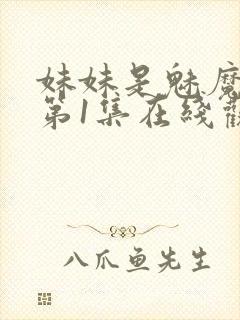 妹妹是魅魔
第1集在綫觀
八爪鱼先生